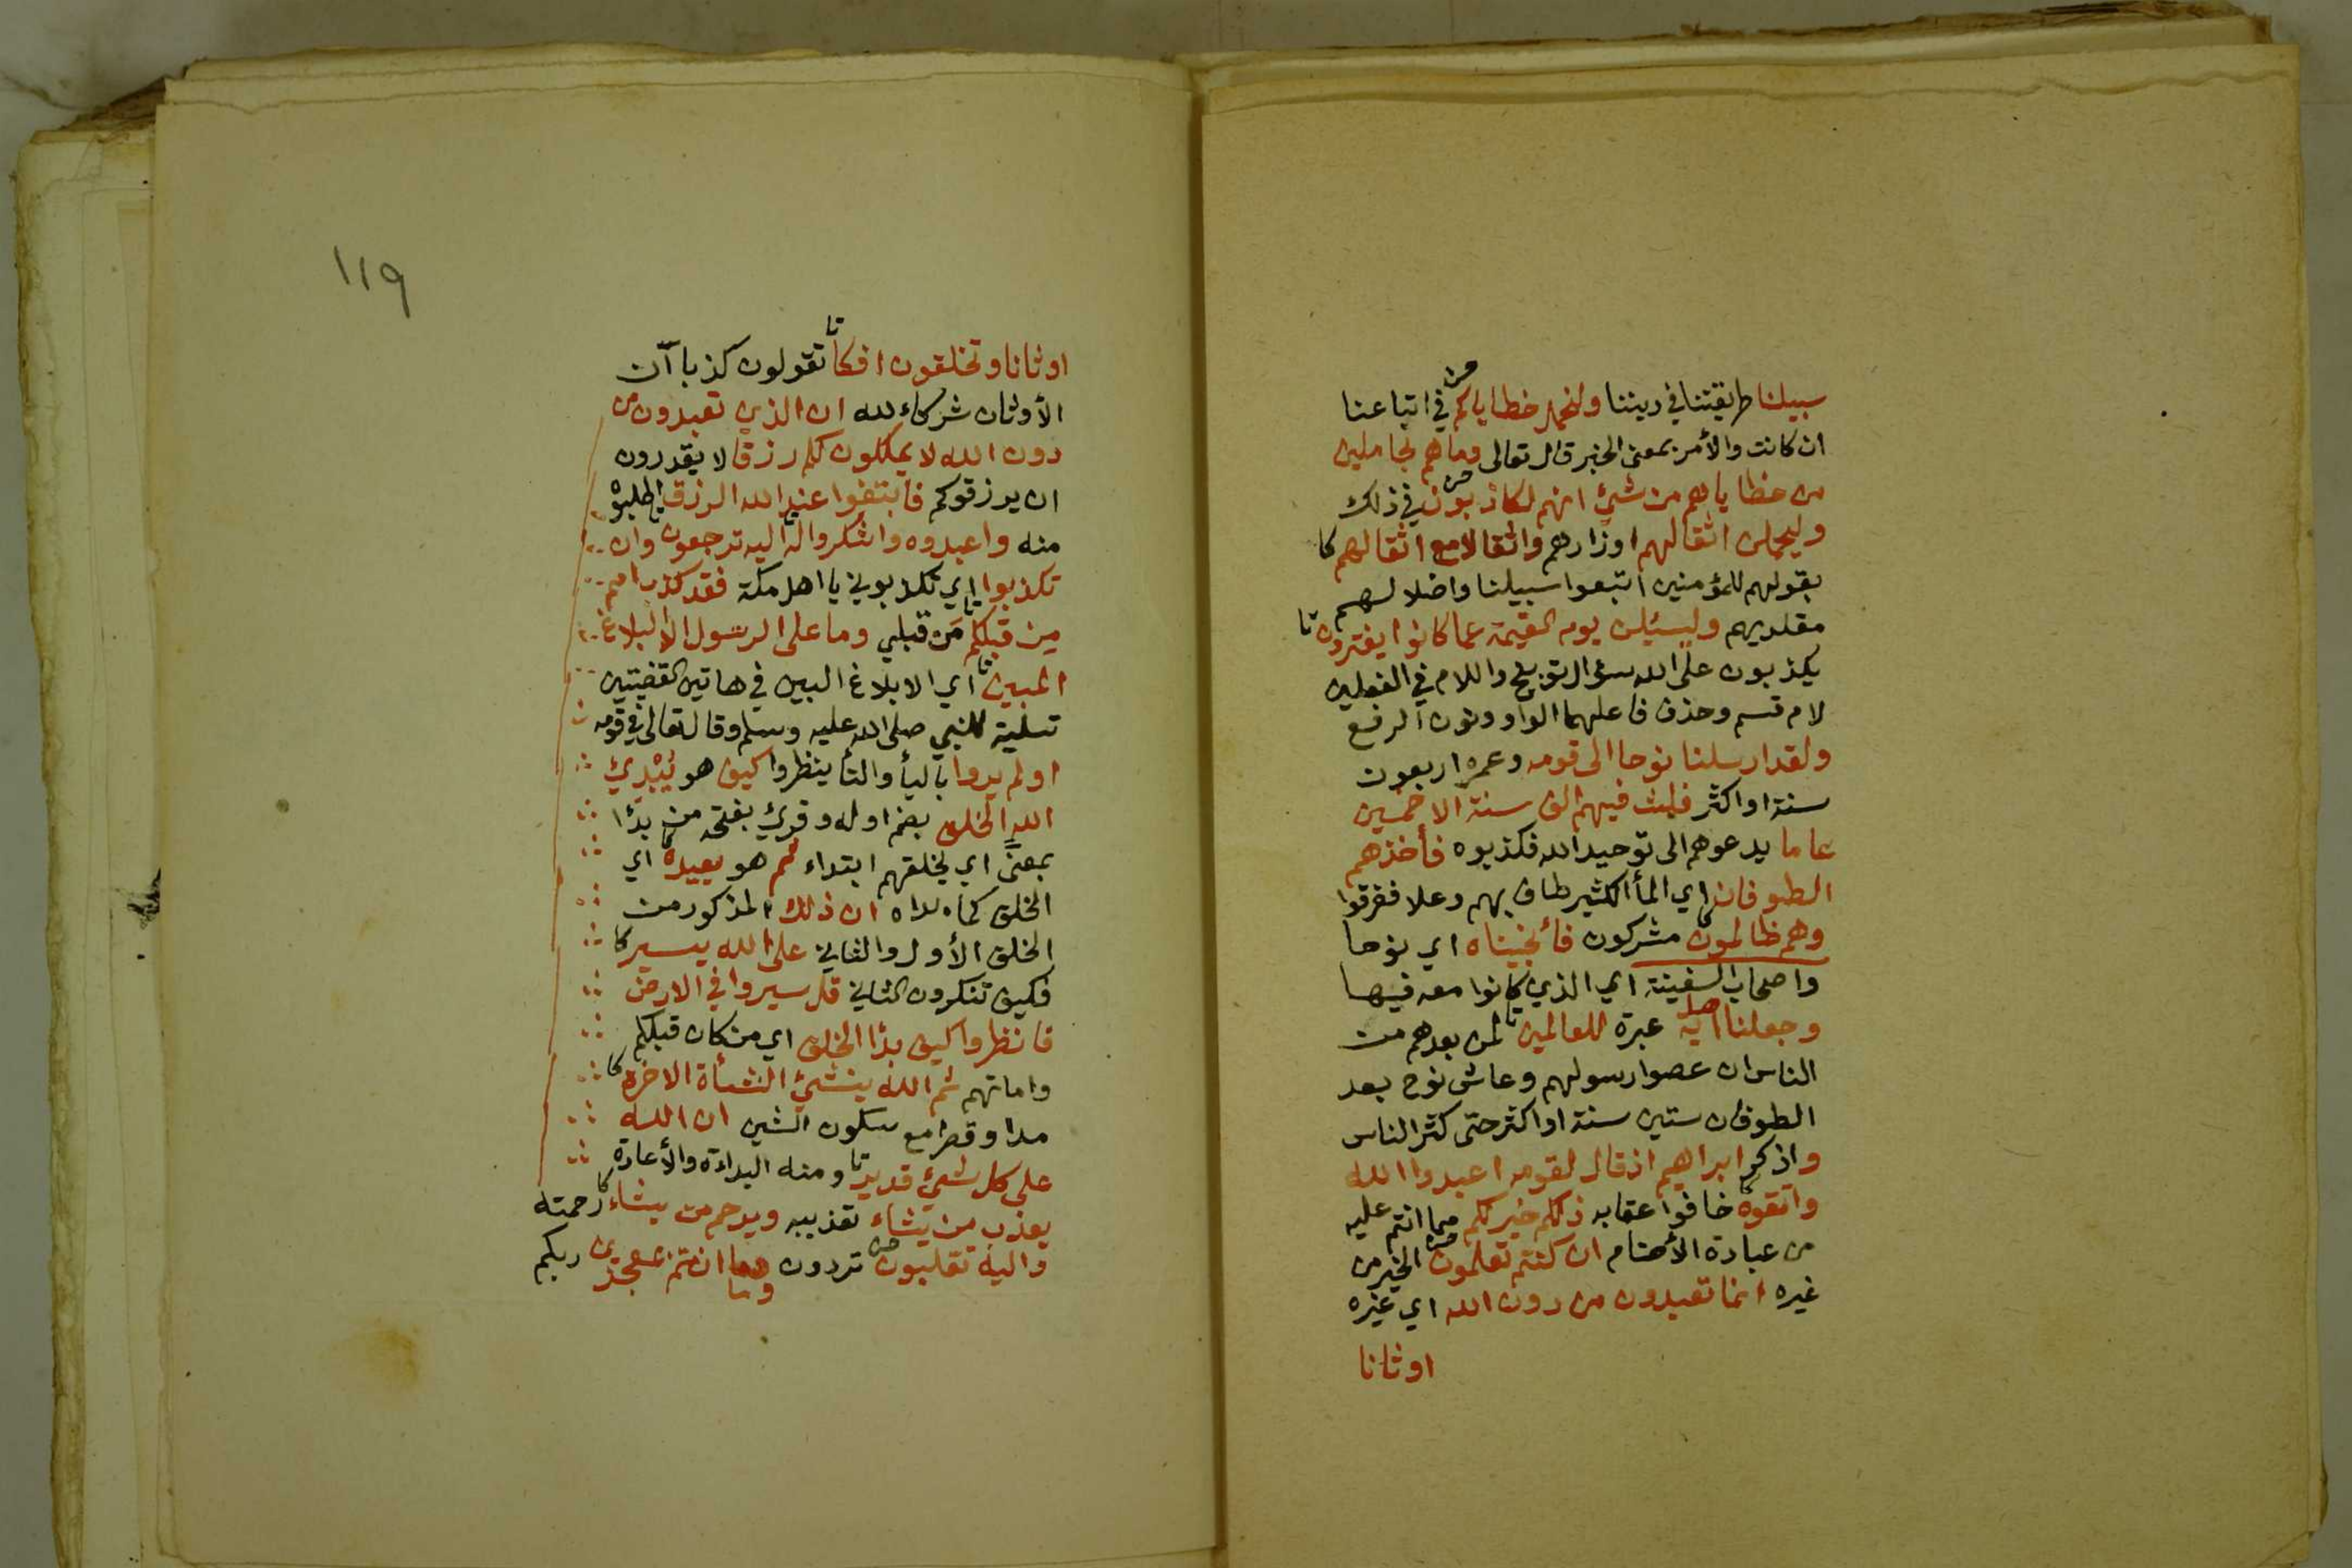 سبيلنا طريقتنا في ديننا ولنحمل خطاياكم في اتباعنا
ان كانت والأمر بمعنى الخبر قال تعالى وما هم بحاملين
من خطاياهم من شيئ انهم لكاذبون في ذلك
وليحملن اثقالهم اوزارهم واثقالا مع اثقالهم كا
بقولهم للمؤمنين اتبعوا سبيلنا واضلالهم
مقلديهم وليسئلن يوم القيمة عما كانوا يفترون تا
يكذبون على الله سؤال توبيخ واللام في الفعلين
لام قسم وحذف فاعلهما الواو ونون الرفع
ولقد ارسلنا نوحا الى قومه وعمره اربعون
سنة او اكثر فلبث فيهم الف سنة الا خمسين
عاما يدعوهم الى توحيد الله فكذبوه فأخذهم
الطوفان اي المأ الكثير طاف بهم وعلا ففرقوا
وهم ظالمون مشركون فأنجيناه اي نوحا
واصحاب السفينة اي الذي كانوا معه فيها
وجعلناها اية عبرة للعالمين تا لمن بعدهم من
الناس ان عصوا رسولهم وعاش نوح بعد
الطوفان ستين سنة او اكثر حتى كثر الناس
واذكر ابراهيم اذ قال لقومه اعبدوا الله
واتقوه خافوا عقابه ذلكم خير لكم مما انتم عليه
من عبادة الأصنام ان كنتم تعلمون الخير من
غيره انما تعبدون من دون الله اي غيره
اوثانا
١١٩
اوثانا وتخلقون افكا تا تقولون كذبا آن
الأوثان شركاء لله ان الذي تعبدون من
دون الله لا يملكون لكم رزقا لا يقدرون
ان يرزقوكم فابتغوا عند الله الرزق اطلبوه
منه واعبدوه واشكروا له اليه ترجعون وان
تكذبوا اي تكذبوني يا اهل مكة فقد كذب امم
من قبلكم تا من قبلي وما على الرسول الا البلاغ
المبين تا اي الابلاغ البين في هاتين القضيتين
تسلية للنبي صلى الله عليه وسلم وقال تعالى في قومه
اولم يروا باليأ والتأ ينظروا كيف هو يُبْدِئ
الله الخلق بضم اوله وقرئ بفتحه من بدًا
بمعنًى اي يخلقهم ابتداء ثم هو يعيده اي
الخلق كما بداه ان ذلك المذكور من
الخلق الأول والثاني على الله يسير كا
فكيف تنكرون الثاني قل سيروا في الارض
فانظروا كيف بدًا الخلق اي من كان قبلكم
واماتهم ثم الله ينشئ النشأة الاخرة كا
مدا وقصرا مع سكون الشين ان الله
على كل شيئ قدير تا ومنه البداءة والأعادة
يعذب من يشاء تعذيبه ويرحم من يشاء كا رحمته
واليه تقلبون تردون وما انتم بمعجزي ربكم